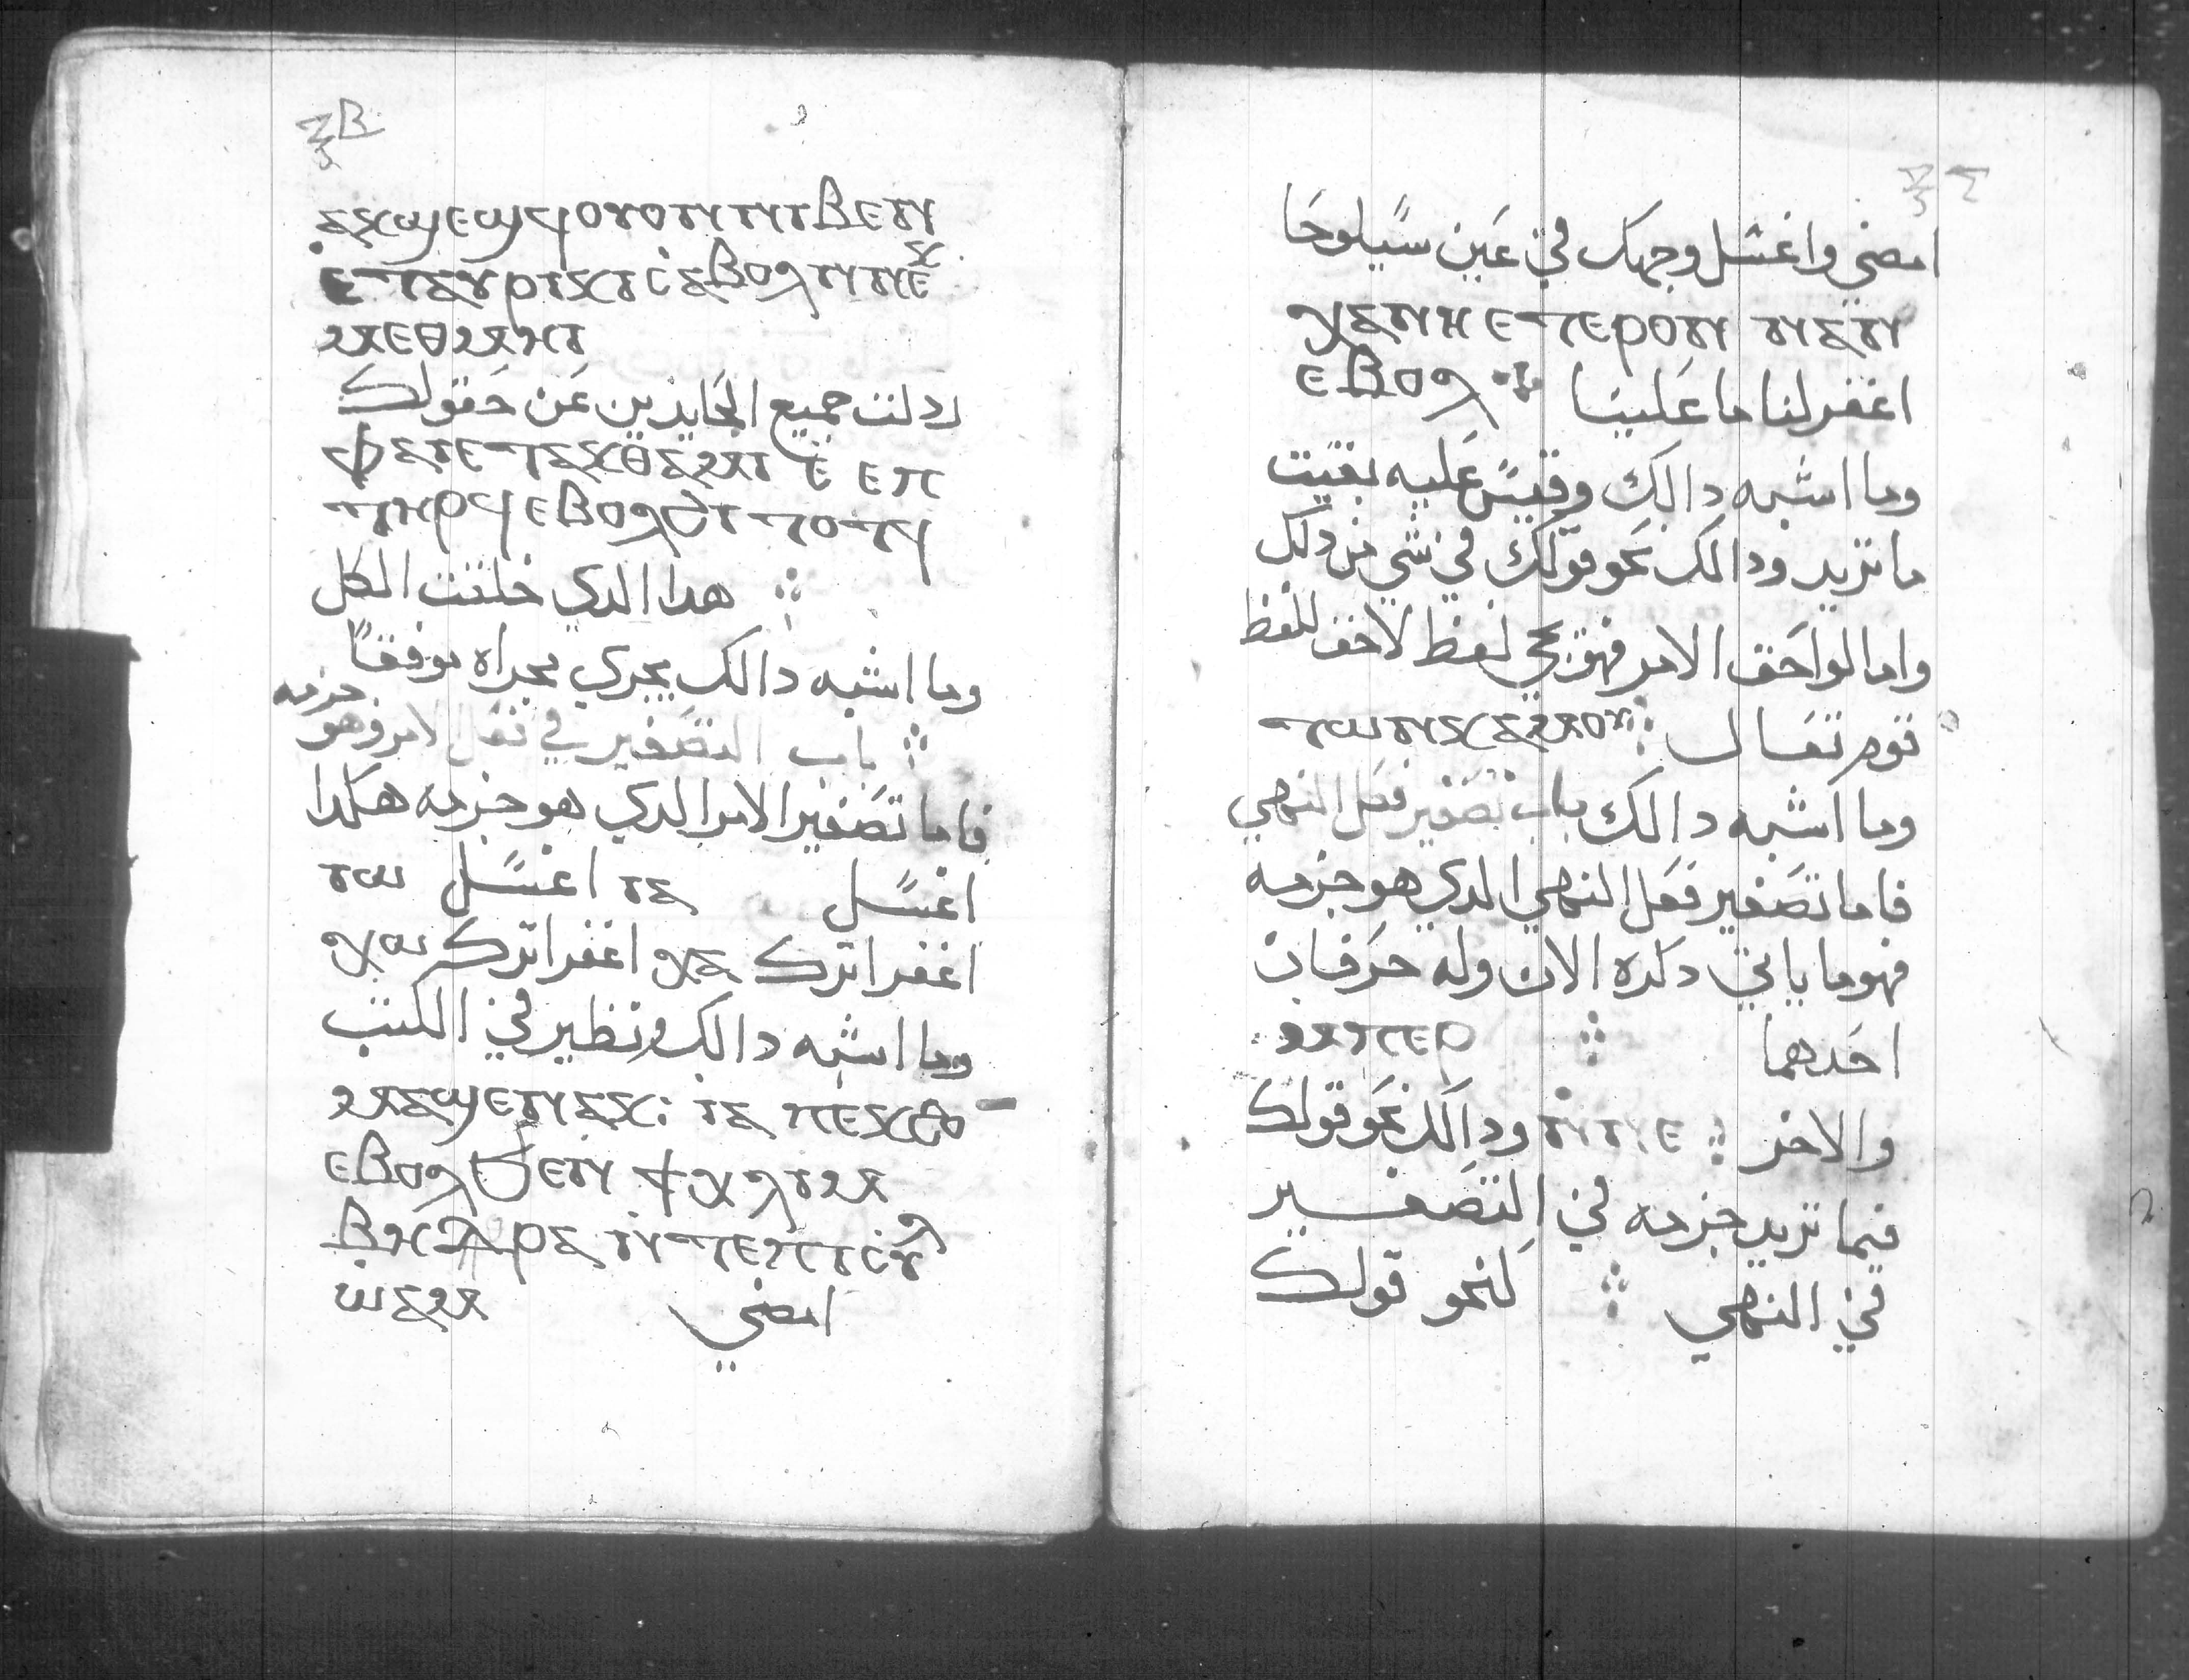 ⲝⲃ
ⲁⲕϣⲉϣϥⲟⲩⲟⲛⲛⲓⲃⲉⲛ
ⲉⲧⲁⲩⲣⲓⲕⲓⲥⲁⲃⲟⲗⲛⲛⲉⲕ
ⲙⲉⲑⲙⲏⲓ
ردلت جميع الحايدين عن حقولك
ⲫⲁⲓⲉⲧⲁⲕⲑⲁⲙⲓ ⲉ ⲉⲡ
ⲧⲏⲣϥⲉⲃⲟⲗϧⲓⲧⲟⲧϥ
هدا الدي خلقت الكل
وما اشبه دالك يجري مجراه موفقا
باب التصغير في فعل الامر وهو جزمه
فاما تصغير الامر الدي هو جزمه هكدا
اغسل ⲓⲁ اغسل ⲓⲱ
اغفر اترك ⲭⲁ اغفر اترك ⲭⲱ
وما اشبه دالك ونظير في الكتب
ⲙⲁϣⲉⲛⲁⲕ: ⲓⲁ ⲡⲉⲕϩⲟ
ⲉⲃⲟⲗϧⲉⲛ ϯⲕⲗⲓⲙ
ⲃⲏⲑⲣⲁ ⲛⲧⲉⲡⲓⲥⲓⲗ
ⲱⲁⲙ امضي
امضي واغسل وجهك في عين سيلوحا
ⲭⲁⲛⲏⲉⲧⲉⲣⲟⲛ ⲛⲁⲛ
اغفر لنا ما علينا ⲉⲃⲟⲗ
وما اشبه دالك وقيس عليه بقيت
ما تريد ودالك نحو قولك في شي من دلك
واما لواحق الامر فهو يجي لفظ لاحق للفظ
قوم تعال ⲧⲱⲛⲕⲁⲙⲟⲩ
وما اشبه دالك باب تصغير فعل النهي
فاما تصغير فعل النهي الدي هو جزمه
فهو ما ياتي دكره الان وله حرفان
احدهما ⲙⲡⲉⲣ
والاخر ⲛⲛⲉ ودالك نحو قولك
فيما تريد جزمه في التصغير
في النهي كنحو قولك